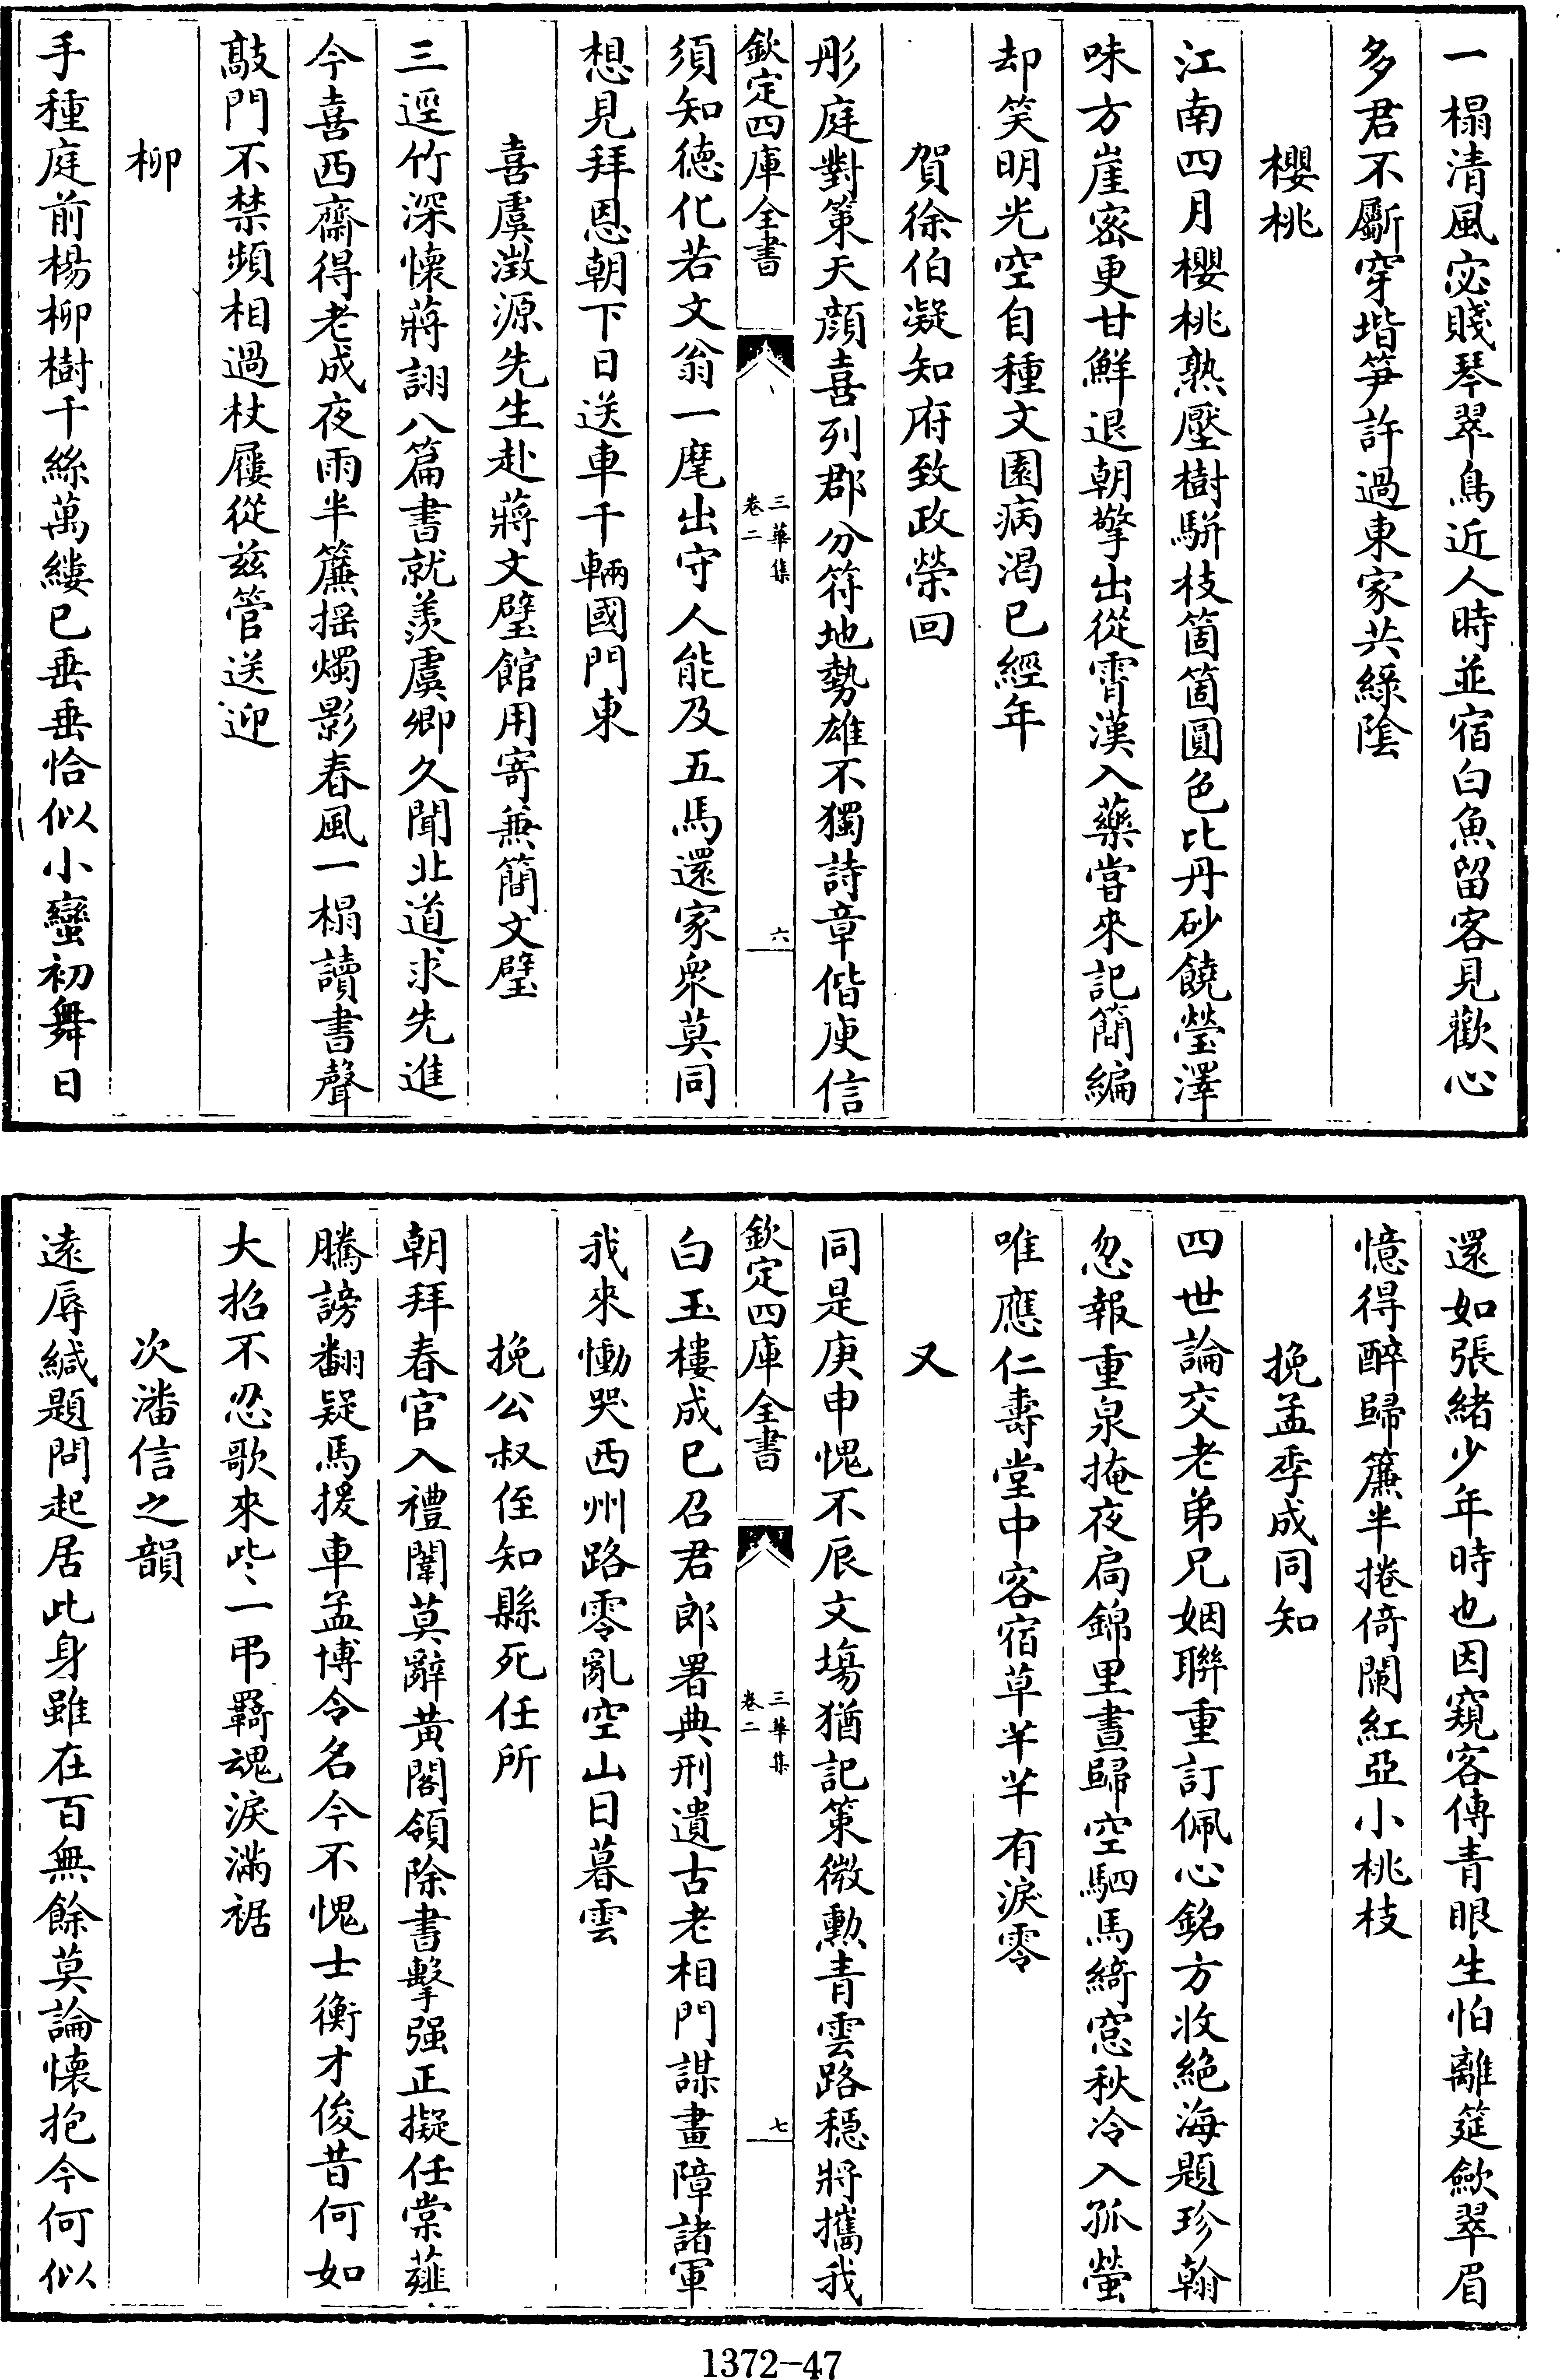 一榻清風宓賤琴翠鳥近人時並宿白魚留客見歡心
多君不斸穿堦笋許過東家共綠陰
櫻桃
江南四月櫻桃熟壓樹駢枝箇箇圓色比丹砂饒瑩澤
味方崖蜜更甘鮮退朝擎出從霄漢入藥嘗來記簡編
却笑明光空自種文園病渴已經年
賀徐伯凝知府致政榮回
彤庭對策天顔喜列郡分符地勢雄不獨詩章偕庾信
欽定四庫全書
三華集
卷二
六
須知德化若文翁一麾出守人能及五馬還家衆莫同
想見拜恩朝下日送車千輛國門東
喜虞澂源先生赴蔣文璧館用寄兼簡文璧
三逕竹深懷蔣詡八篇書就羨虞卿久聞北道求先進
今喜西齋得老成夜雨半簾搖燭影春風一榻讀書聲
敲門不禁頻相過杖屨從兹管送迎
柳
手種庭前楊柳樹千絲萬縷已垂垂恰似小蠻初舞日
還如張緒少年時也因窺客傳青眼生怕離筵斂翠眉
憶得醉歸簾半捲倚闌紅亞小桃枝
挽孟季成同知
四世論交老弟兄姻聯重訂佩心銘方收絶海題珍翰
忽報重泉掩夜扃錦里晝歸空駟馬綺窓秋冷入孤螢
唯應仁壽堂中客宿草芊芊有淚零
又
同是庚申愧不辰文塲猶記策微勲青雲路穩將攜我
欽定四庫全書
三華集
卷二
七
白玉樓成已召君郎署典刑遺古老相門謀畫障諸軍
我來慟哭西州路零亂空山日暮雲
挽公叔侄知縣死任所
朝拜春官入禮闈莫辭黄閣領除書擊强正擬任棠薤
騰謗翻疑馬援車孟博令名今不愧士衡才俊昔何如
大招不忍歌來些些一弔羇魂淚滿裾
次潘信之韻
遠辱緘題問起居此身雖在百無餘莫論懷抱今何似
1372-47